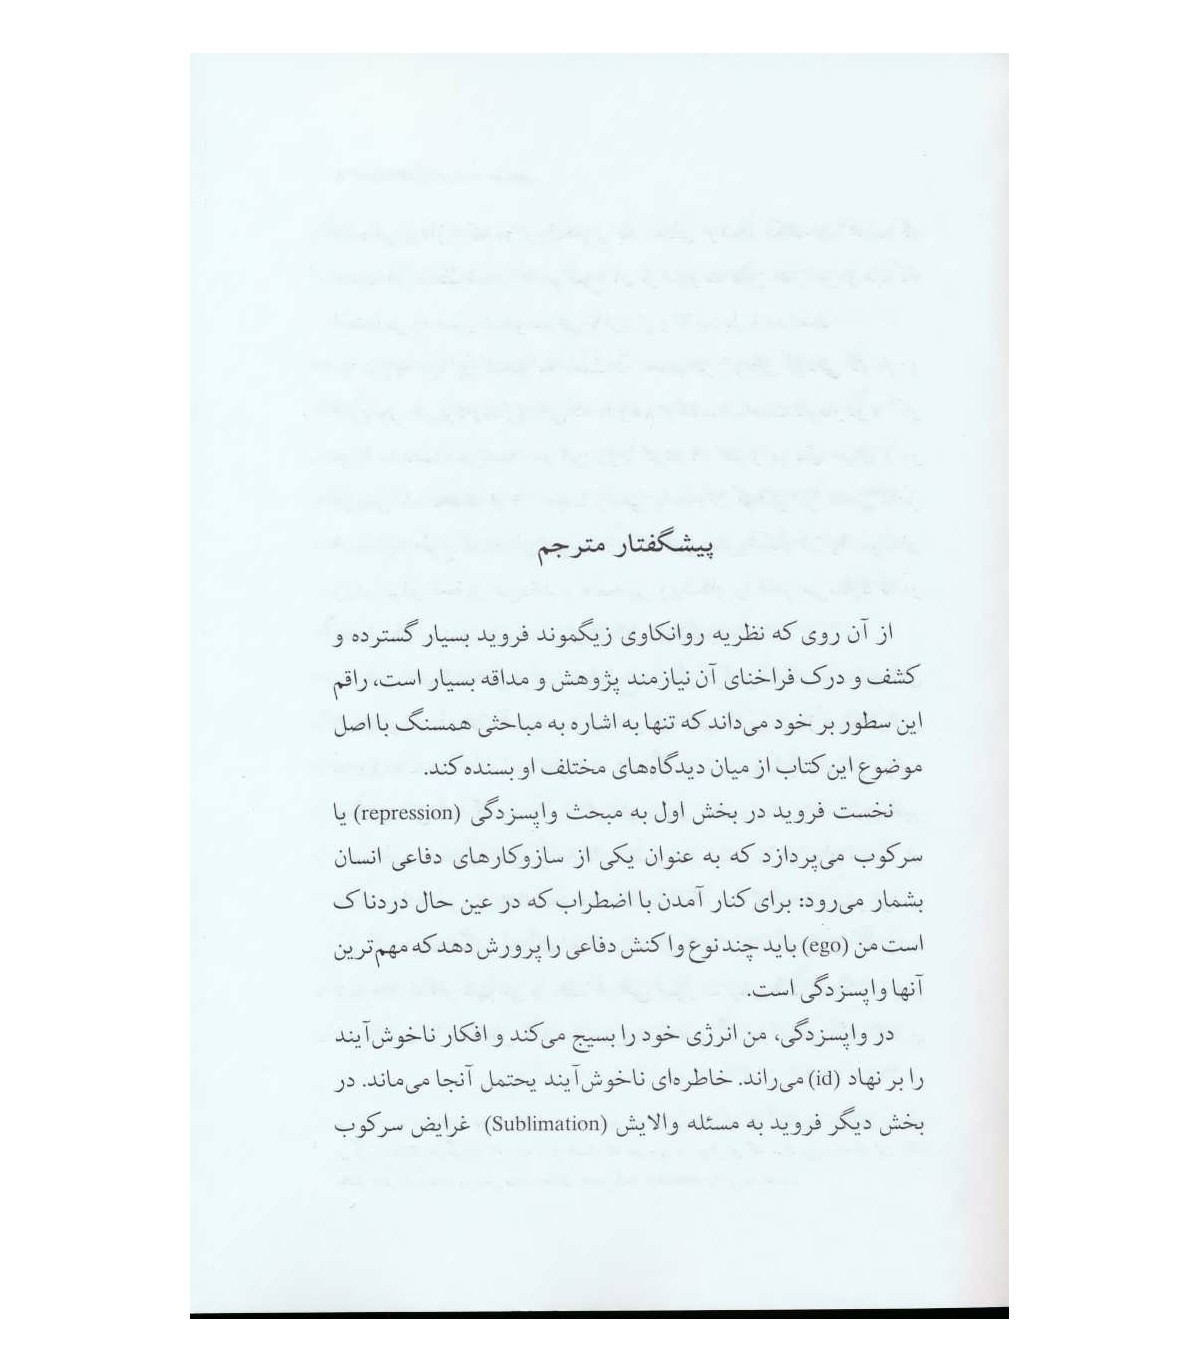 پیشگفتار مترجم
از آن روی که نظریه روانکاوی زیگموند فروید بسیار گسترده و
کشف و درک فراخنای آن نیازمند پژوهش و مداقه بسیار است، راقم
این سطور بر خود می‌داند که تنها به اشاره به مباحثی همسنگ با اصل
موضوع این کتاب از میان دیدگاه‌های مختلف او بسنده کند.
نخست فروید در بخش اول به مبحث واپسزدگی (repression) یا
سرکوب می‌پردازد که به عنوان یکی از سازوکارهای دفاعی انسان
بشمار می‌رود: برای کنار آمدن با اضطراب که در عین حال دردناک
است من (ego) باید چند نوع واکنش دفاعی را پرورش دهد که مهم‌ترین
آنها واپسزدگی است.
در واپسزدگی، من انرژی خود را بسیج می‌کند و افکار ناخوش‌آیند
را بر نهاد (id) می‌راند. خاطره‌ای ناخوش‌آیند یحتمل آنجا می‌ماند. در
بخش دیگر فروید به مسئله والایش (Sublimation) غرایض سرکوب